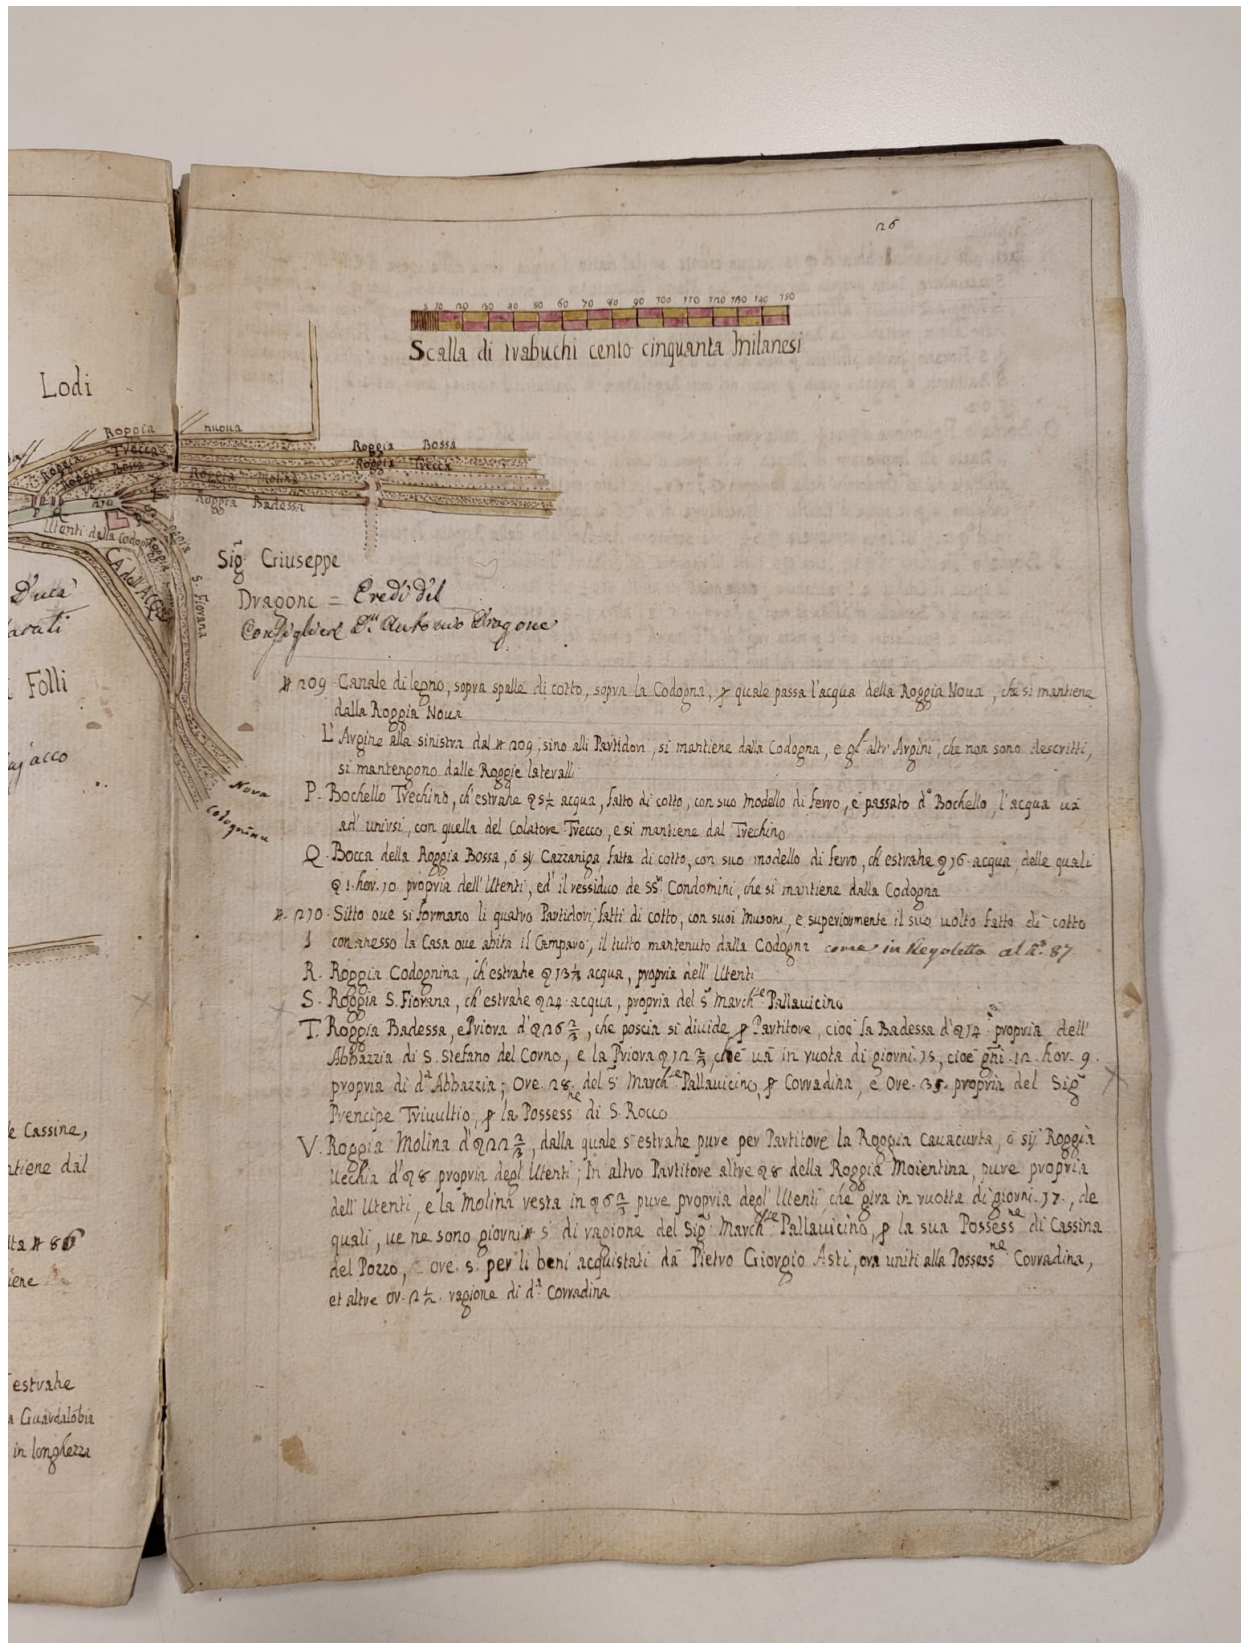 26
5 10 20 30 40 50 60 70 80 90 100 110 120 130 140 150
Scalla di trabuchi cento cinquanta Milanesi
Lodi
Roggia nuova
Trecca
Roggia Bossa
Roggia Bossa
Roggia Trecca
Roggia Molina
Roggia Badessa
P Q 210
Utenti della Codogna
S. Fiorana
Nova
Codognina
Sig.r Giuseppe
Dragone = Eredi del
Consigliere D.n Antonio Dragone
Duca
Folli
# 209 Canale di legno, sopra spalle di cotto, sopra la Codogna, p quale passa l'acqua della Roggia Noua, che si mantiene
dalla Roggia Noua
L'Argine alla sinistra dal # 209, sino alli Partidori, si mantiene dalla Codogna, e gl'altri Argini, che non sono descritti,
si mantengono dalle Roggie laterali
P. Bochello Trechino, ch'estrahe 9 5½ acqua, fatto di cotto, con suo modello di ferro, e passato d.o Bochello, l'acqua uà
ad' unirsi, con quella del Colatore Trecco, e si mantiene dal Trechino
Q. Bocca della Roggia Bossa, ò sij Cazzaniga fatta di cotto, con suo modello di ferro, ch'estrahe 9 16 acqua, delle quali
9 1. hor. 10 propria dell'Utenti, ed' il ressiduo de SS.ri Condomini, che si mantiene dalla Codogna
# 210 Sitto oue si formano li quatro Partidori, fatti di cotto, con suoi Musoni, e superiormente il suo uolto fatto di cotto
con anesso la Casa oue abita il Camparo, il tutto mantenuto dalla Codogna come in Regoletta al N.o 87
R. Roggia Codognina, ch'estrahe 9 13⅓ acqua, propria dell'Utenti
S. Roggia S. Fiorana, ch'estrahe 9 24 acqua, propria del S.r March.se Pallauicino
T. Roggia Badessa, e Priora d'9 26⅔, che poscia si diuide p Partitore, cioè la Badessa d'9 14 propria dell'
Abbazzia di S. Stefano del Corno, e la Priora 9 12⅔, che uà in ruota di giorni 15, cioè gni. 12. hor. 9
propria di d.a Abbazzia; Ore. 28. del S.r March.se Pallauicino, p Corradina, e Ore. 35. propria del Sig.r
Prencipe Triuultio, p la Possess.ne di S. Rocco
V. Roggia Molina d'9 22⅔, dalla quale s'estrahe pure per Partitore la Roggia Cauacurta, ò sij Roggia
Uechia d'9 8 propria degl'Utenti; In altro Partitore altre 9 8 della Roggia Moientina, pure propria
dell'Utenti, e la Molina resta in 9 6⅔ pure propria degl'Utenti, che gira in ruotta di giorni 17, de
quali, ue ne sono giorni 5 di ragione del Sig.r March.se Pallauicino, p la sua Possess.ne di Cassina
del Pozzo, ore. 5. per li beni acquistati dà Pietro Giorgio Asti, ora uniti alla Possess.ne Corradina,
et altre or. 2½ ragione di d.a Corradina
e Cassine,
ntiene dal
# 86
iene
estrahe
a Guardalobia
in longhezza